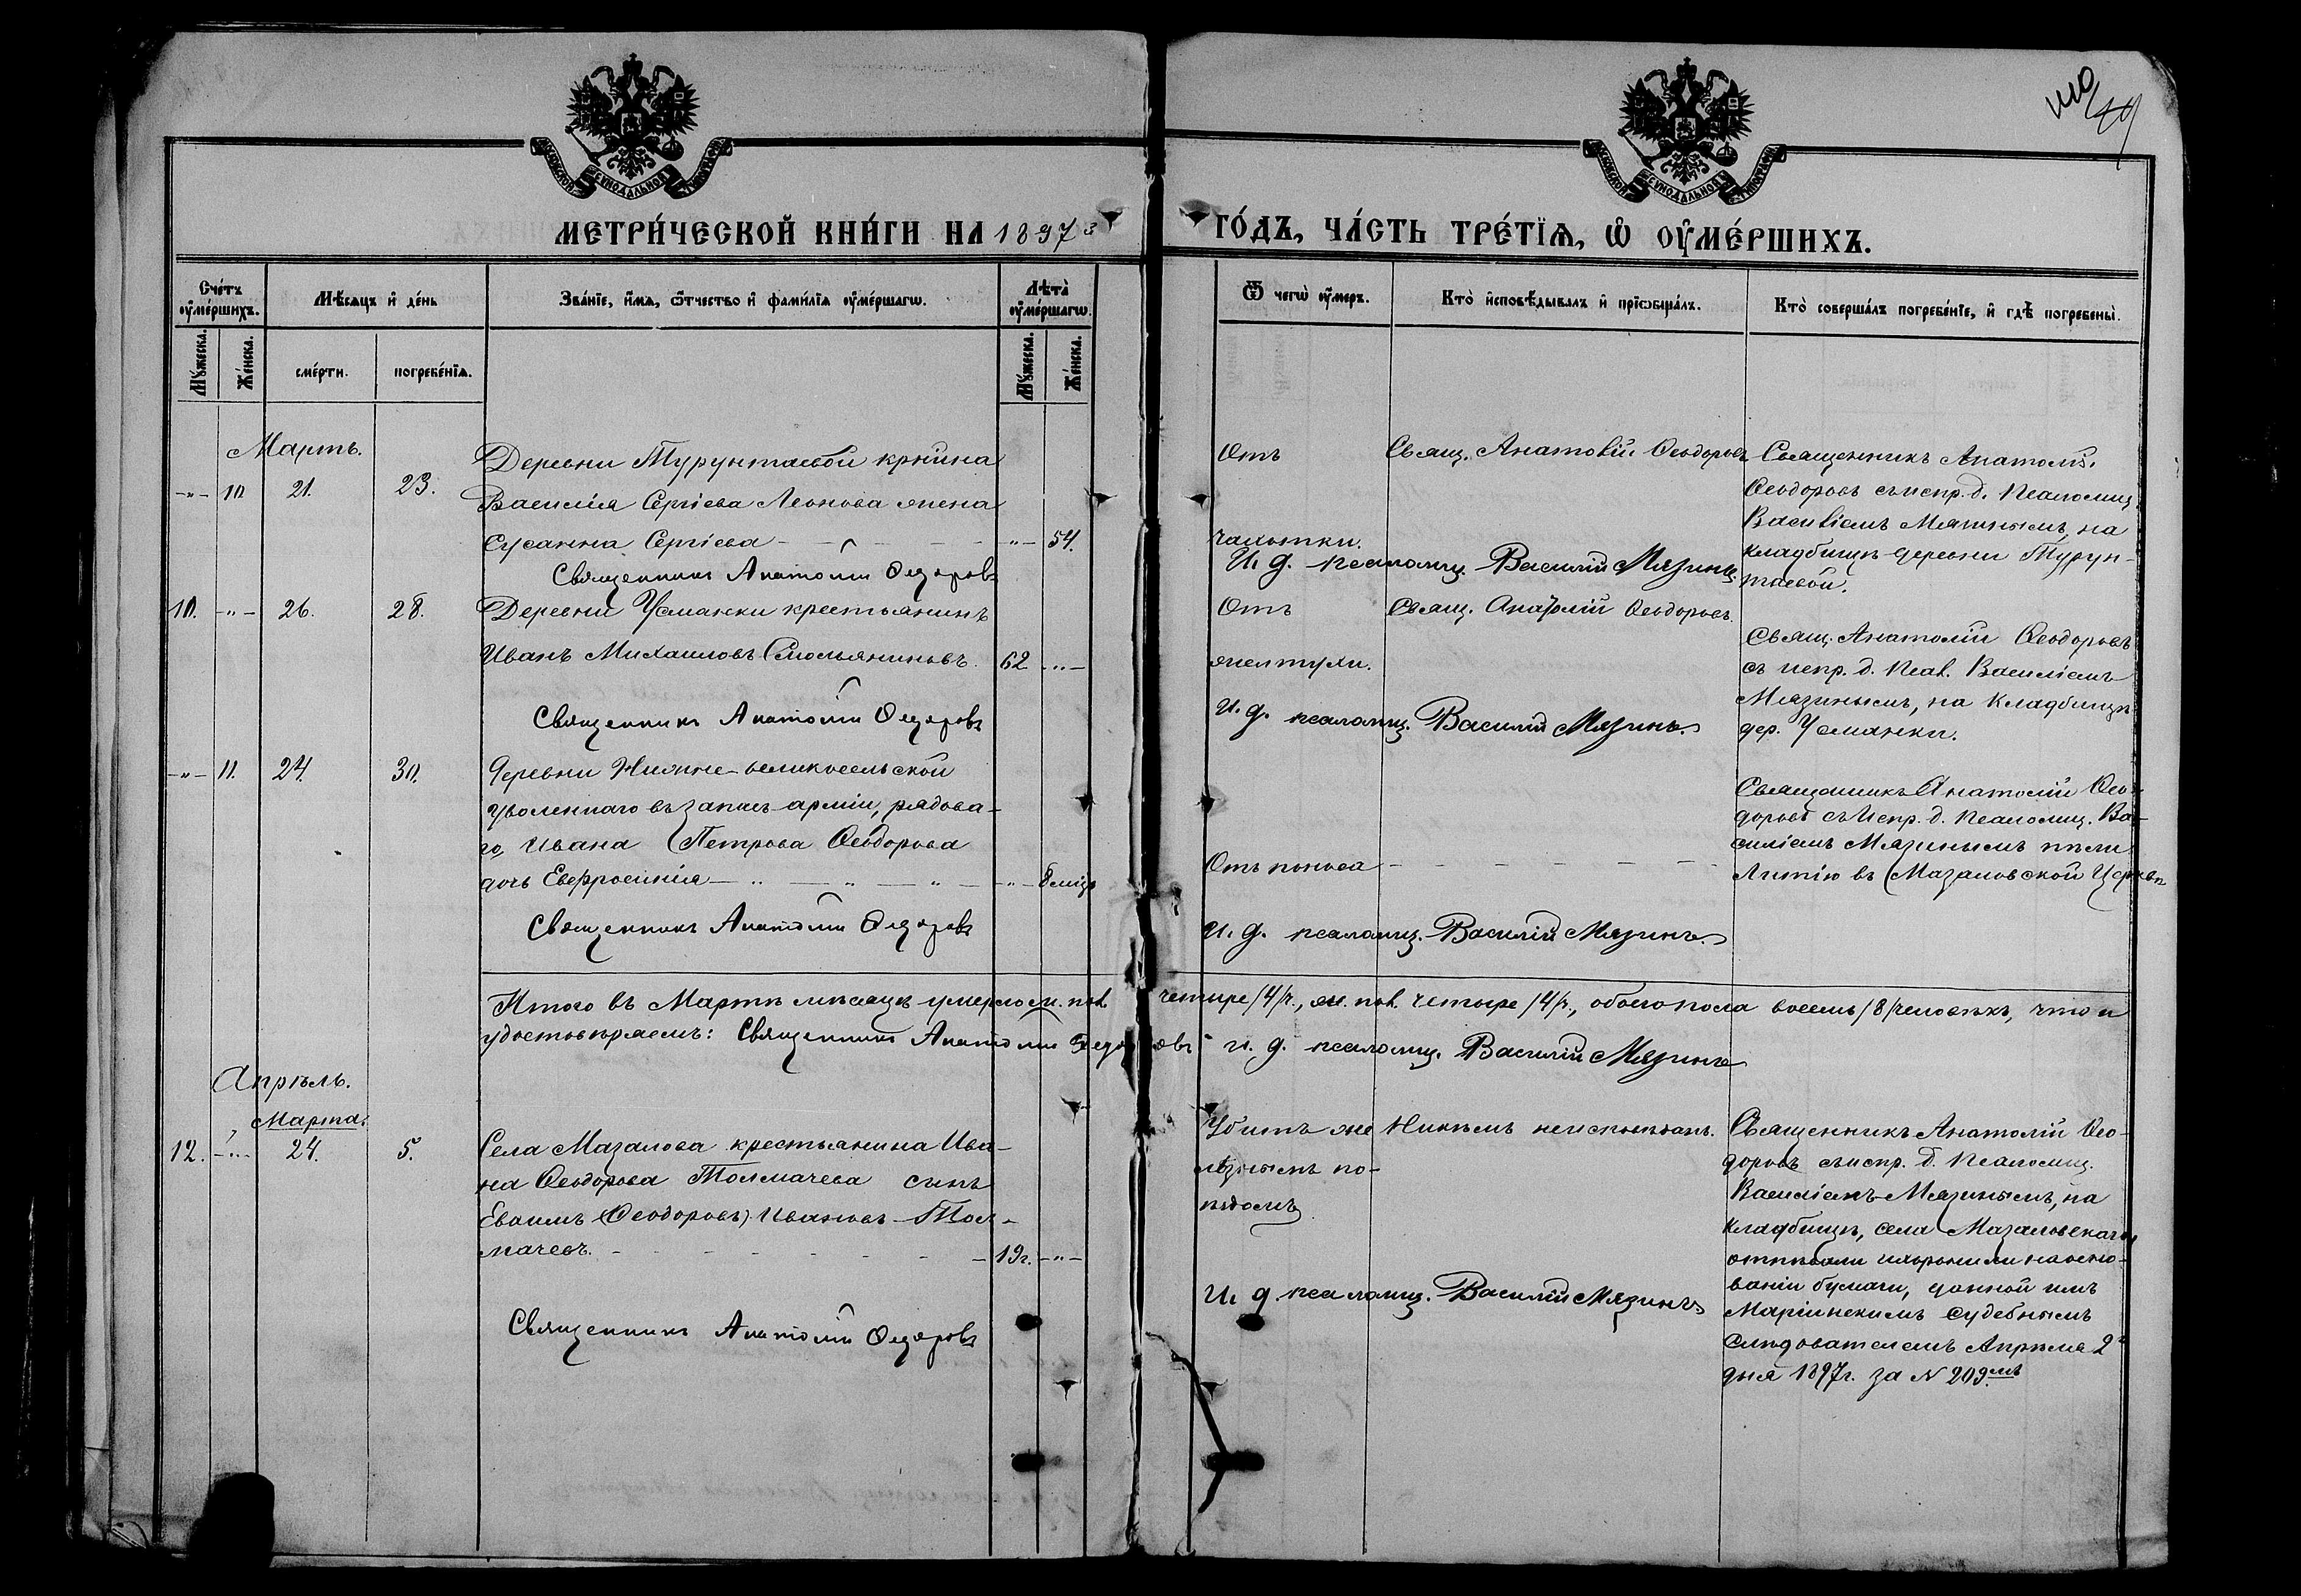 МЕТРИ́ЧЕСКОЙ КНИ́ГИ НА 1897 й
ГО́ДЪ, ЧА́СТЬ ТРЕ́ТЇѦ, Ѡ ОУ҆МЕ́РШИХЪ.
Сче́тъ оу҆ме́ршихъ.
Мꙋ́жеска.
Же́нска.
Мѣ́сяцъ и҆ де́нь
сме́рти.
погребе́нїѧ.
Зва́нїе, и҆́мѧ, ѻ҆́тчество и҆ фами́лїѧ оу҆ме́ршагѡ.
Лѣта̀ оу҆ме́ршагѡ.
Мꙋ́жеска.
Же́нска.
Ѿ чегѡ̀ оу҆́меръ.
Кто̀ и҆сповѣ́дывалъ и҆ прїѡбща́лъ.
Кто̀ соверша́лъ погребе́нїе, и҆ гдѣ̀ погребены̀.
Мартъ.
-"- 10 21. 23.
Деревни Турунтаевой крнина
Василія Сергіева Леонова жена
Сусанна Сергіева - "- 54.
Священникъ Анатолій Федоровъ
Отъ
чахотки.
Свящ. Анатолій Ѳеодоровъ
И. д. псаломщ. Василій Мязинъ.
Священникъ Анатолій
Ѳеодоровъ съ испр. д. Псаломщ.
Василіемъ Мязинымъ, на
кладбищѣ деревни Турун-
таевой.
10. -"- 26. 28.
Деревни Усманки крестьянинъ
Иванъ Михаиловъ Смольяниновъ. 62 -"-
Священникъ Анатолій Федоровъ
Отъ
желтухи.
Свящ. Анатолій Ѳеодоровъ.
И. д. псаломщ. Василій Мязинъ.
Свящ. Анатолій Ѳеодоровъ
съ испр. д. Псал. Василіемъ
Мязинымъ, на Кладбищѣ
дер. Усманки.
-"- 11. 24. 30.
Деревни Нижне-великосельской
уволеннаго въ запасъ арміи, рядова-
го, Ивана Петрова Ѳеодорова
дочь Евфросинія - " - " - " - -"- 8 міц.
Священникъ Анатолій Федоровъ
Отъ поноса - - - - -
И. д. псаломщ. Василій Мязинъ.
Священникъ Анатолій Ѳео-
доровъ съ Испр. д. Псаломщ. Ва-
силіемъ Мязинымъ пѣли
Литію въ Мазаловской Церкви
Итого въ Мартѣ мѣсяцѣ умерло м. пол. четыре /4/ ч., ж. пол. четыре /4/ ч., обоего пола восемь /8/ человѣкъ, что и
удостовѣряемъ: Священникъ Анатолій Федоровъ И. д. псаломщ. Василій Мязинъ
Апрѣль.
Марта.
12. -"- 24. 5.
Села Мазалова крестьянина Ива-
на Ѳеодорова Толмачева сынъ
Ивановъ Тол-
мачевъ. - - - - - 19г. -"-
Священникъ Анатолій Федоровъ
Убитъ же
лѣзнымъ по-
Никѣмъ неисповѣданъ.
И. д. псаломщ. Василій Мязинъ
Священникъ Анатолій Ѳео-
доровъ съ испр. д. Псаломщ.
Василіемъ Мязинымъ, на
кладбищѣ, села Мазаловскаго,
отпѣвали и хоронили на осно-
ваніи бумаги, данной имъ
Маріинскимъ Судебнымъ
Слѣдователемъ Апрѣля 2го
дня 1897г. за N 209мъ